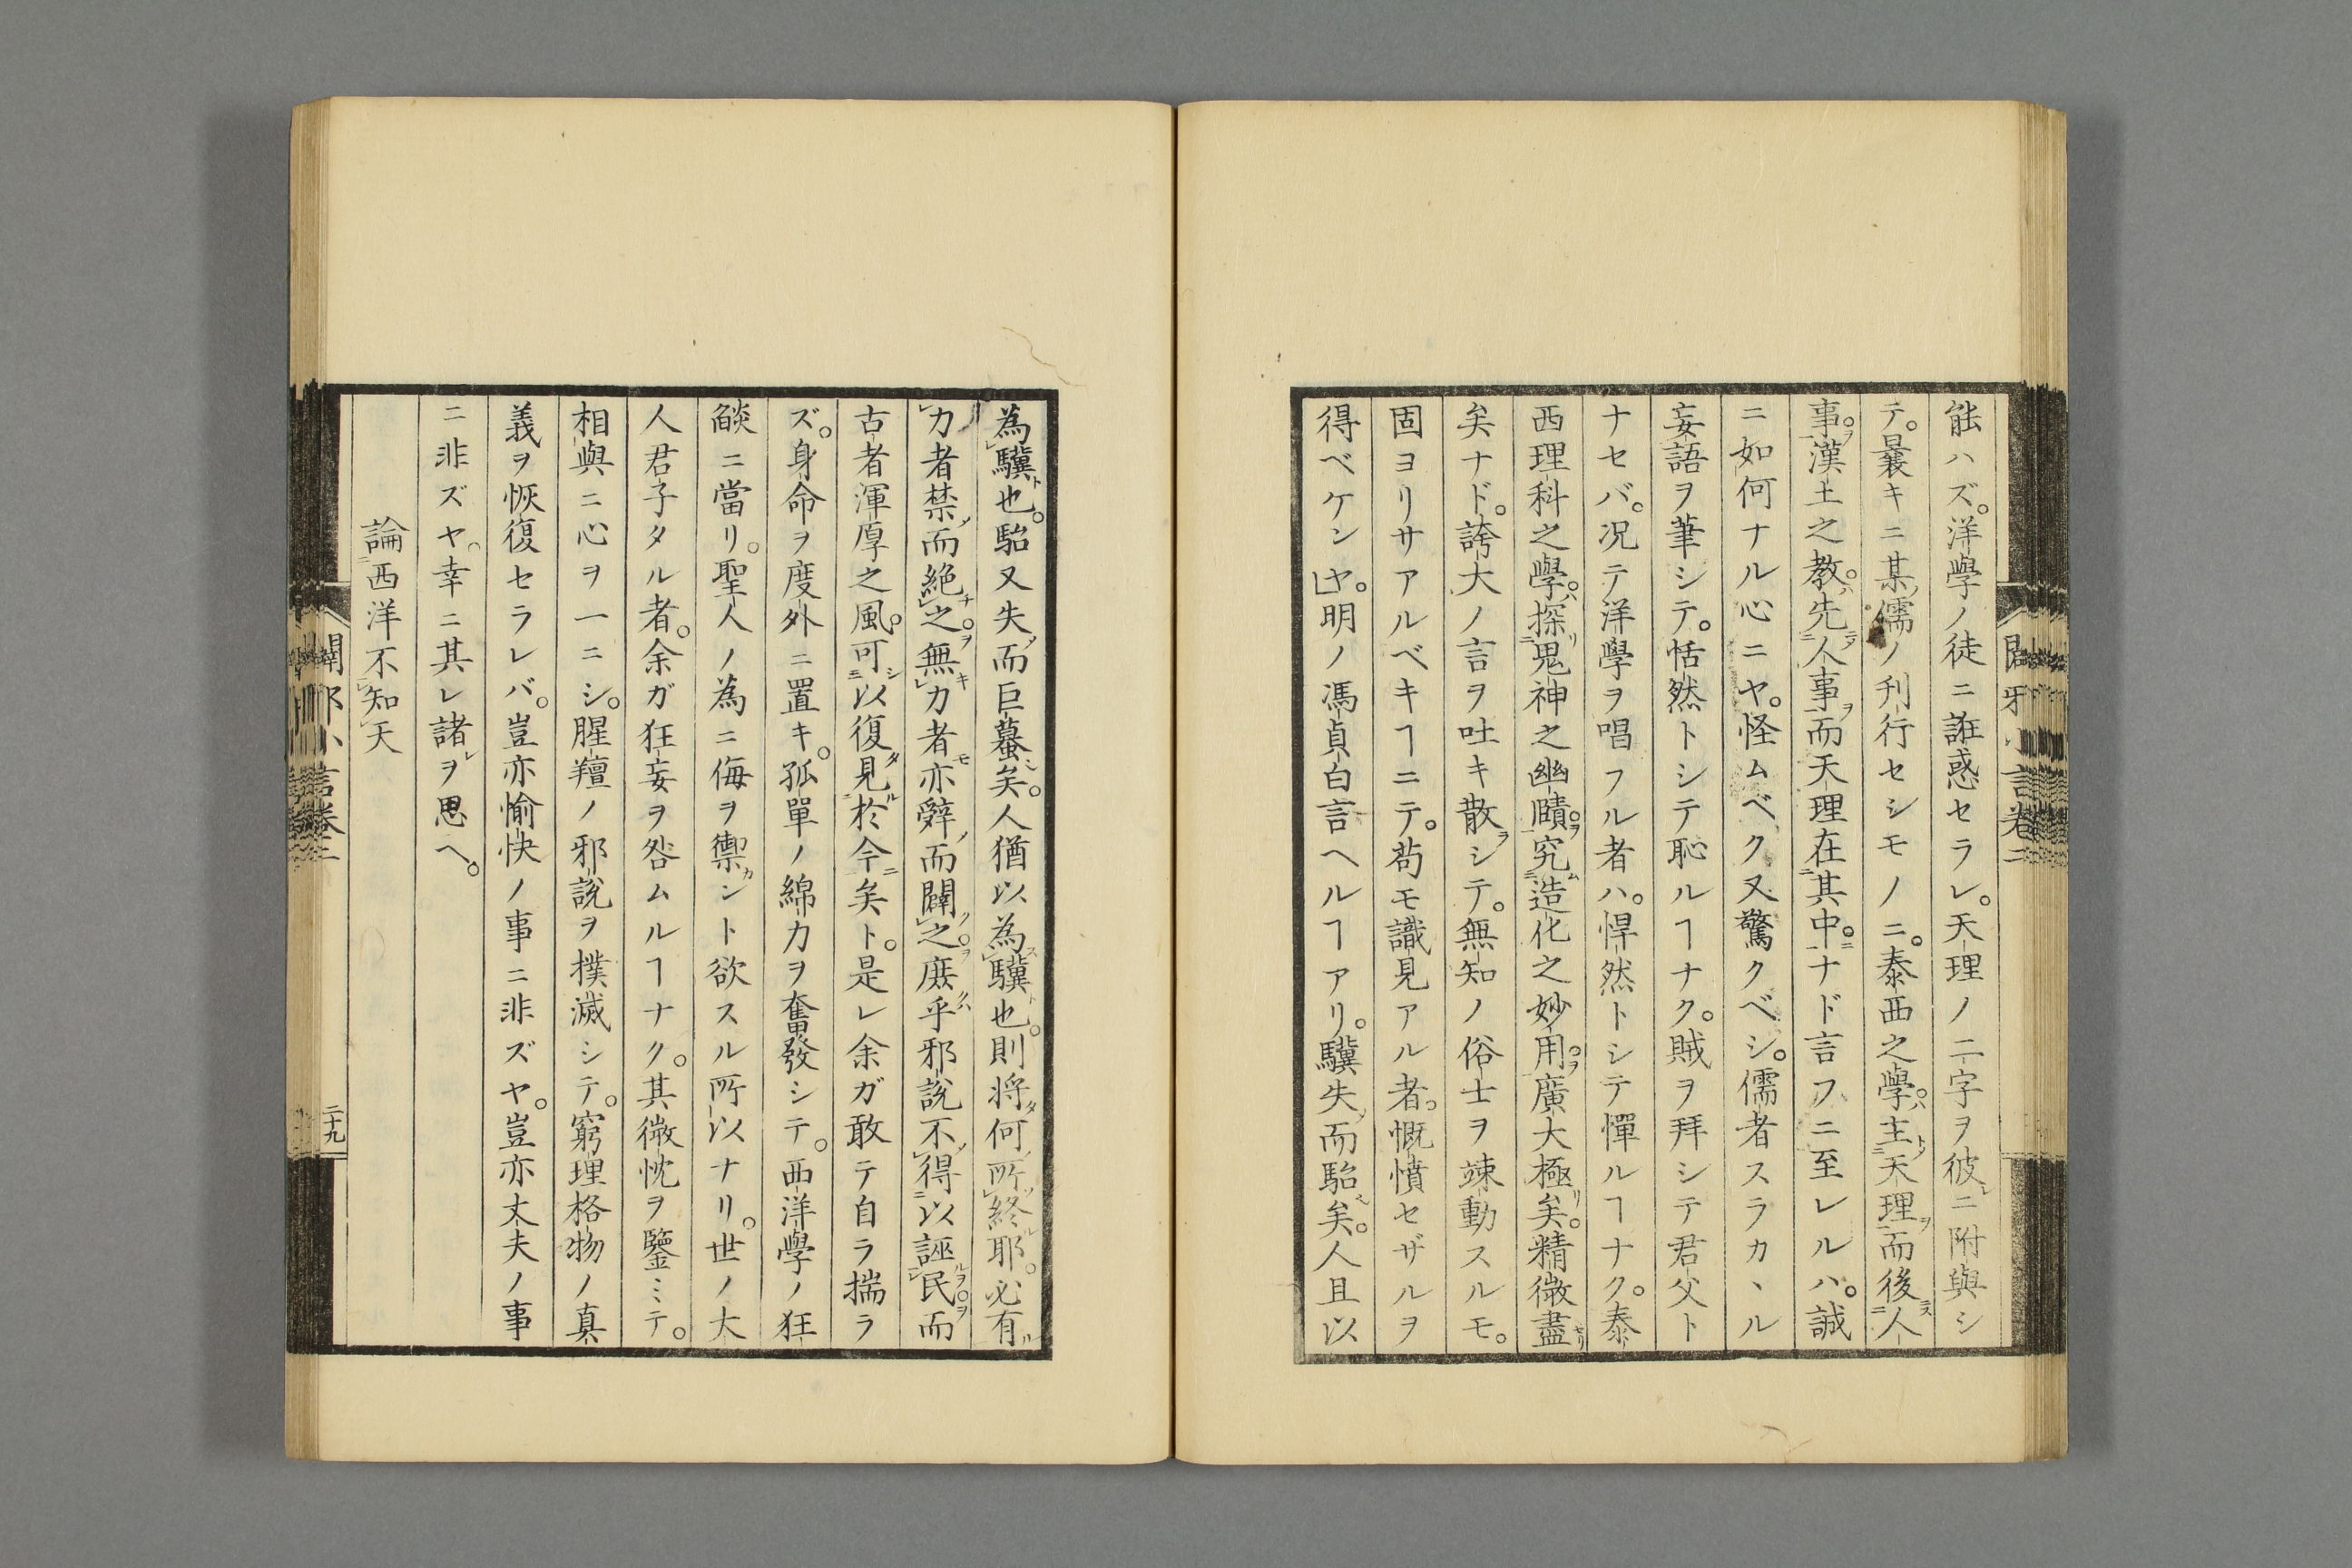 能ハズ。洋學ノ徒ニ誑惑セラレ。天理ノ二字ヲ彼レニ附與シ
テ。曩キニ某儒ノ刋行セシモノニ。泰西之學。主天理而後人
事。漢土之教。先人事而天理在其中。ナド言フニ至レルハ。誠
ニ如何ナル心ニヤ。怪ムベク又驚クベシ。儒者スラカヽル
妄語ヲ筆シテ。恬然トシテ恥ルヿナク。賊ヲ拜シテ君父ト
ナセバ。况テ洋學ヲ唱フル者ハ。悍然トシテ憚ルヿナク。泰
西理科之學。探鬼神之幽賾。究造化之妙用。廣大極矣。精微盡
矣ナド。誇大ノ言ヲ吐キ散シテ。無知ノ俗士ヲ竦動スルモ。
固ヨリサアルベキヿニテ。苟モ識見アル者。慨憤セザルヲ
得ベケンヤ。明ノ馮貞白言ヘルヿアリ。驥失而駘矣。人且以
為驥也。駘又失而巨蟇矣。人猶以為驥也。則将何所終耶。必有
力者禁而絶之。無力者亦辭而闢之。庶乎邪說不得以誣民而
古者渾厚之風。可以復見於今矣ト。是レ余ガ敢テ自ラ揣ラ
ズ。身命ヲ度外ニ置キ。孤單ノ綿力ヲ奮發シテ。西洋學ノ狂
燄ニ當リ。聖人ノ為ニ侮ヲ禦ガント欲スル所以ナリ。世ノ大
人君子タル者。余ガ狂妄ヲ咎ムルヿナク。其微忱ヲ鑒ミテ。
相與ニ心ヲ一ニシ。腥羶ノ邪說ヲ撲滅シテ。窮理格物ノ真
義ヲ恢復セラレバ。豈亦愉快ノ事ニ非ズヤ。豈亦丈夫ノ事
ニ非ズヤ。幸ニ其レ諸レヲ思ヘ。
論西洋不知天
闢邪小言卷二
二十九